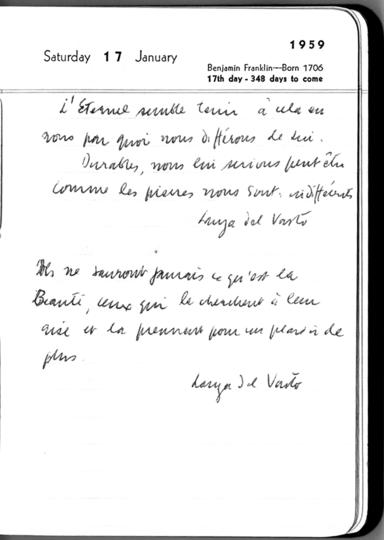 1959
Saturday 17 January
Benjamin Franklin—Born 1706
17th day - 348 days to come
L'Eternel semble tenir à cela en
nous par quoi nous différons de lui.
Durables, nous lui serions peut être
comme les pierres nous sont: indifférents
Lanza del Vasto
Ils ne sauront jamais ce qu'est la
Beauté, ceux qui la cherchent à leur
aise et la prennent pour un plaisir de
plus.
Lanza del Vasto